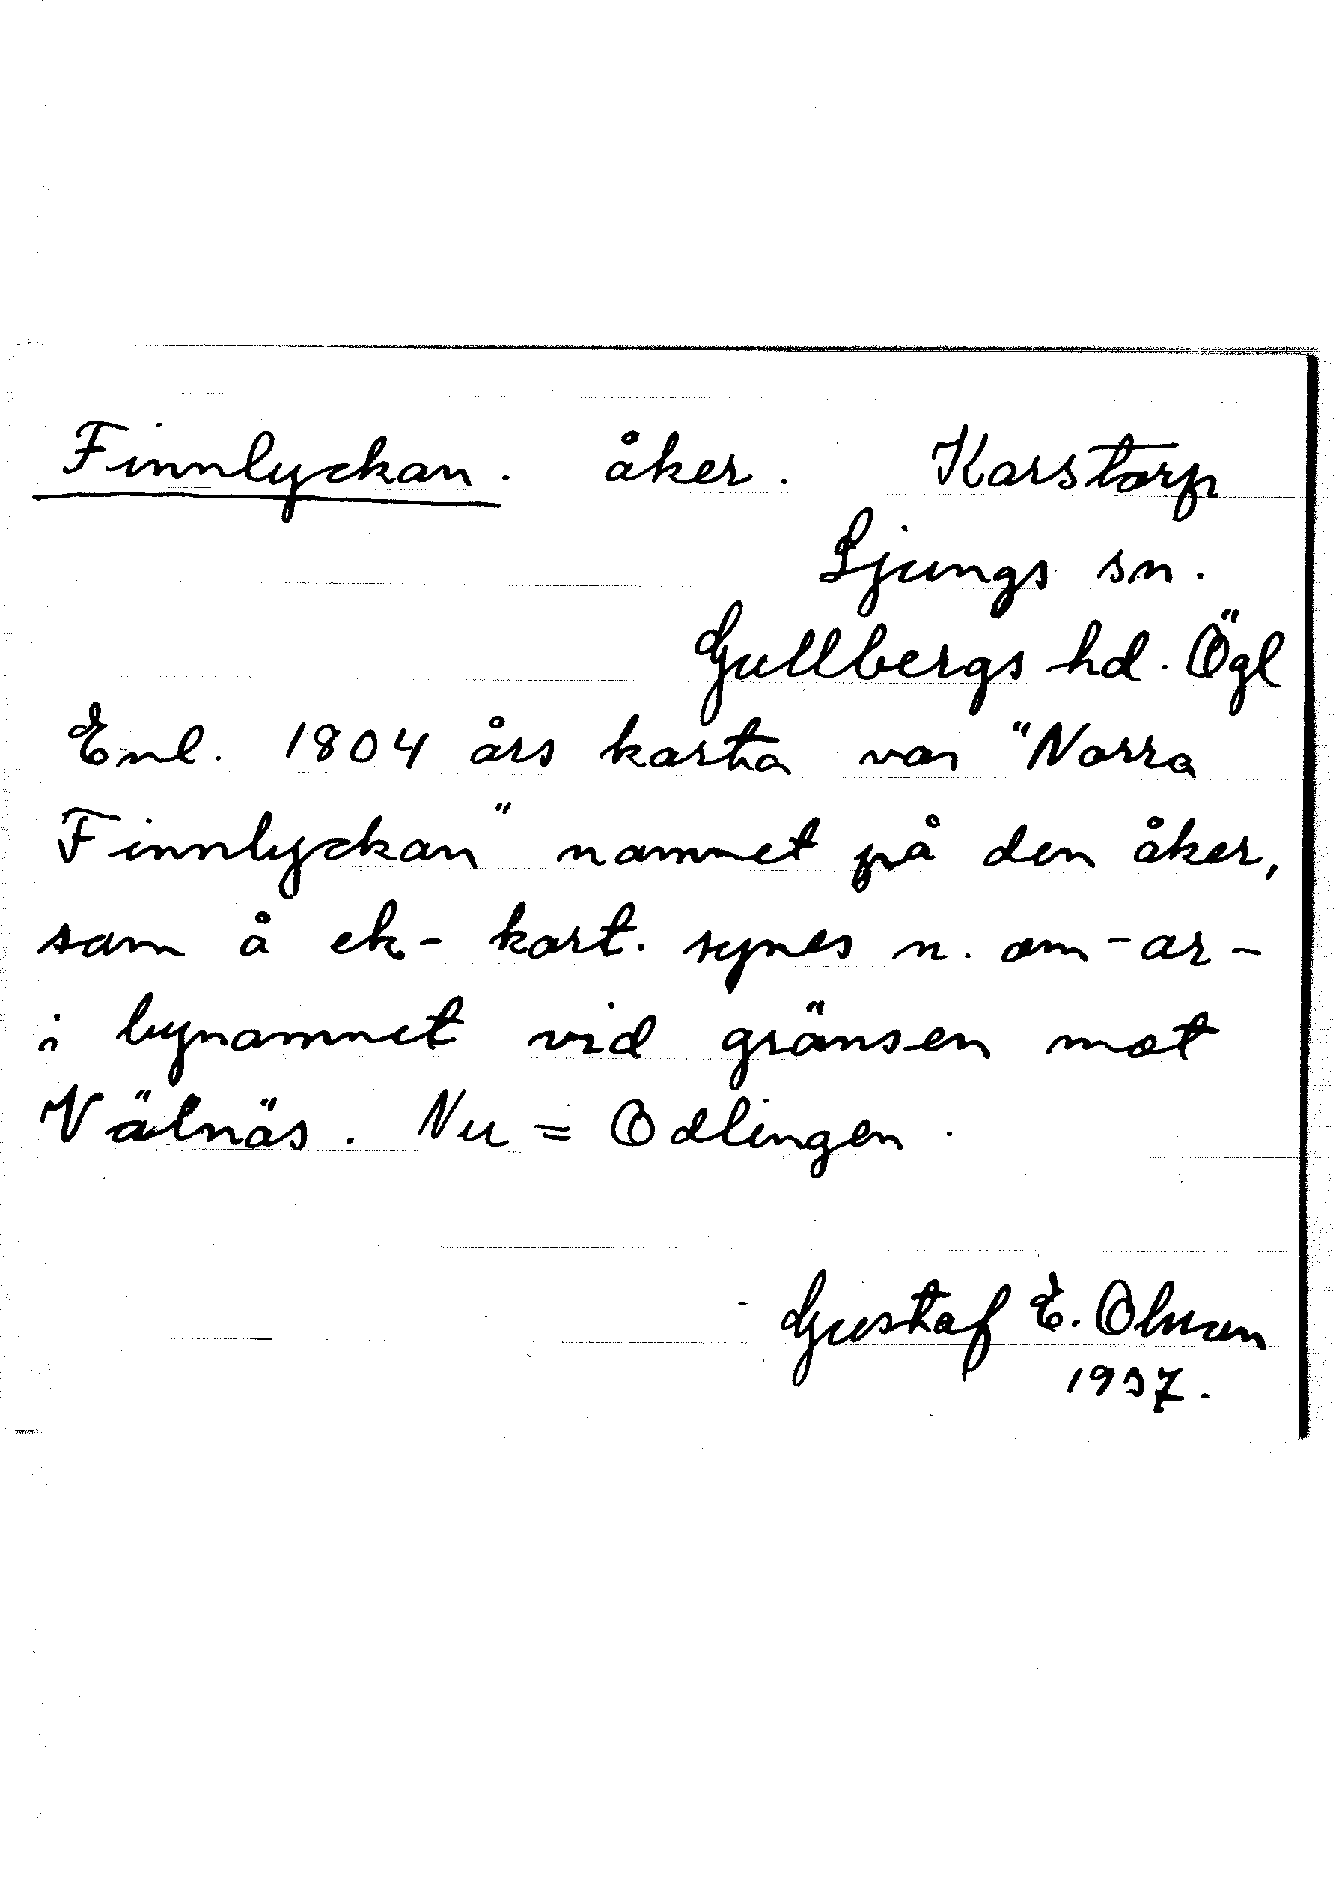 Finnlyckan. åker. Karstorp
Ljungs sn.
Gullbergs hd. Ögl
Enl. 1804 års karta var "Norra
Finnlyckan" namnet på den åker,
som å ek-kart. synes n. om -ar-
i bynamnet vid gränsen mot
Välnäs. Nu = Odlingen.
Gustaf E. Olman
1937.